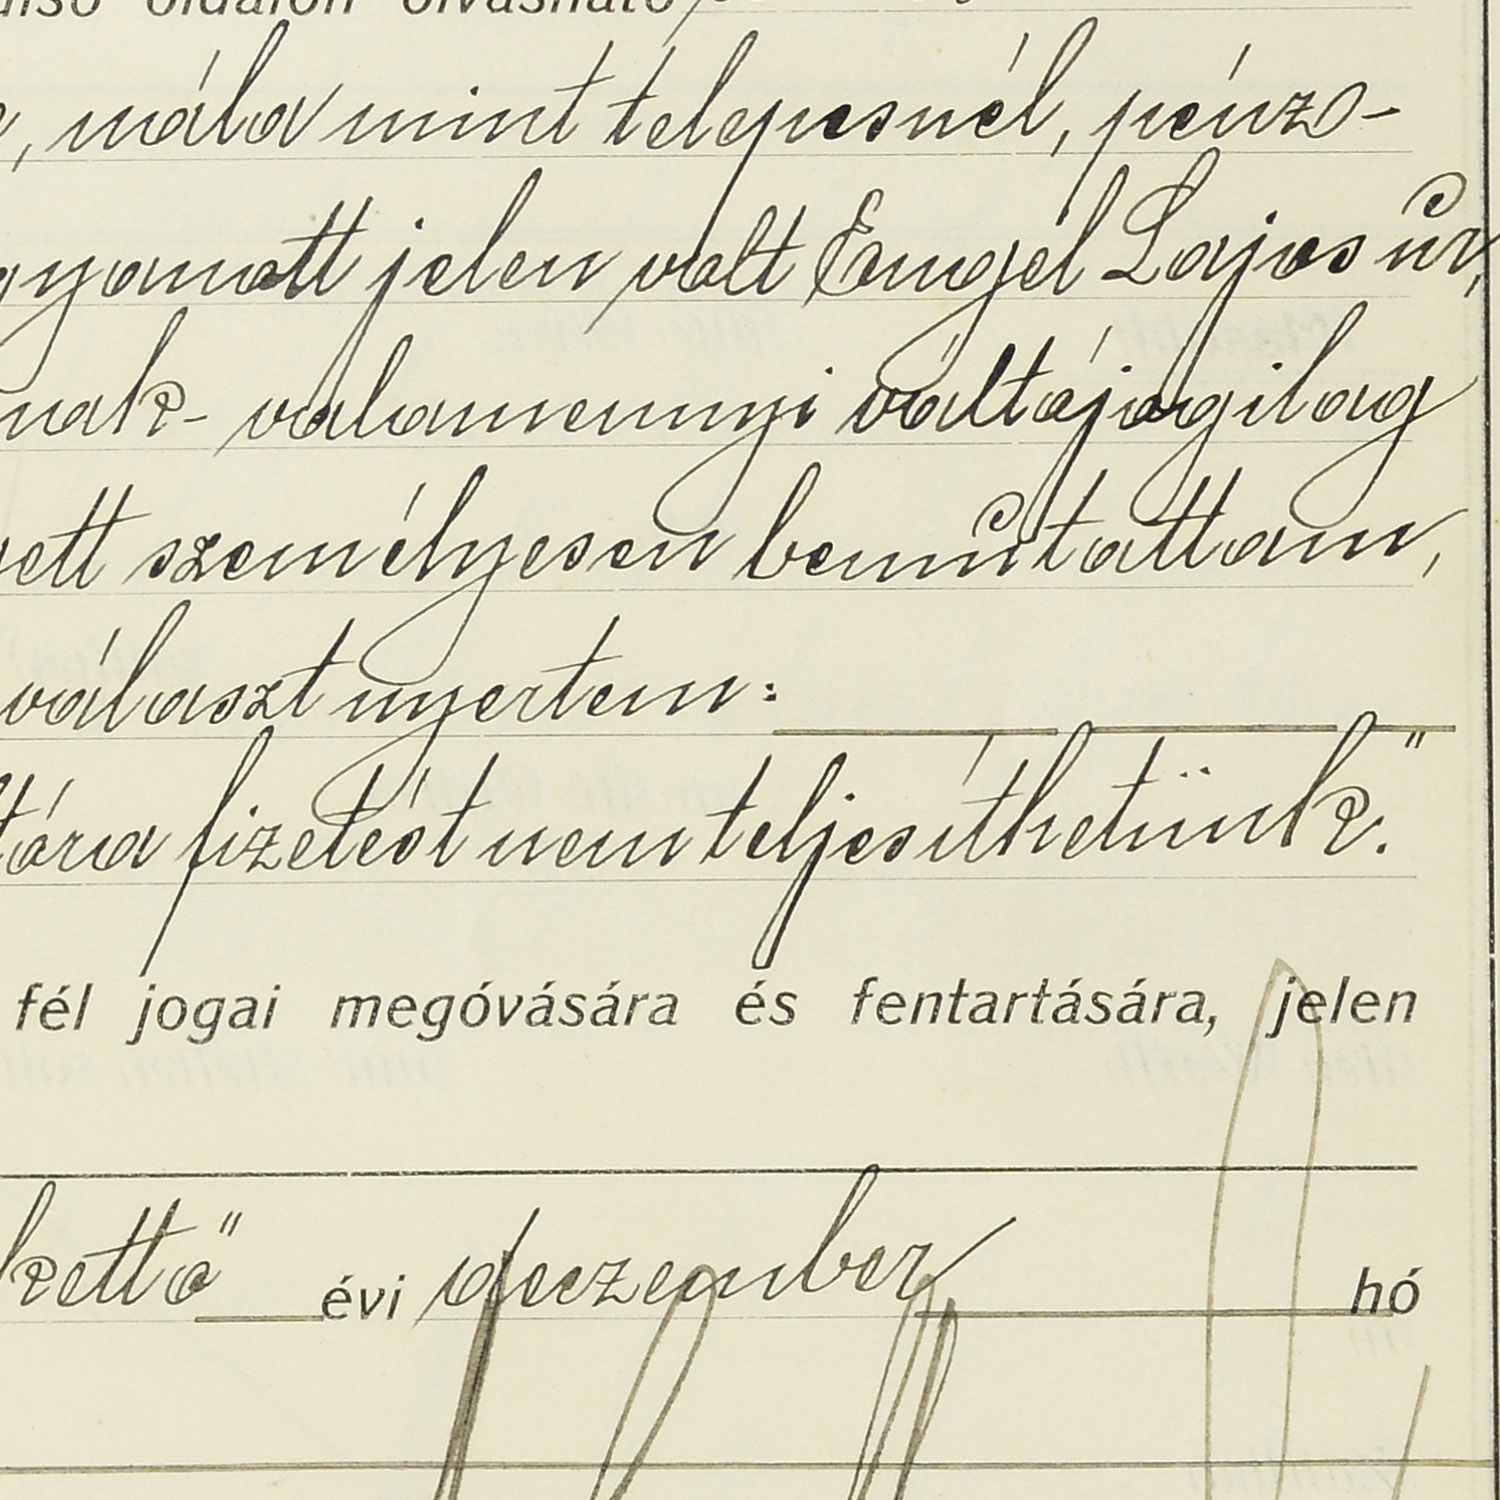 alsó oldalon olvasható
, nála mint telepesnél, pénzo-
gyanott jelen volt Engel Lajos úr,
nak- valamennyi váltójogilag
ett személyesen bemutattam,
választ nyertem:
tára fizetést nem teljesíthetünk."
fél jogai megóvására és fentartására, jelen
kettő" évi deczember hó